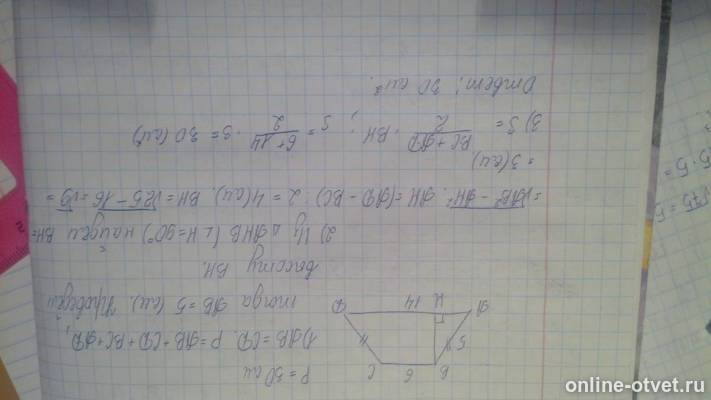 P = 30 см
B 6 C
5
A H 14 D
1) AB = CD. P = AB + CD + BC + AD,
тогда AB = 5 (см). Проведем
высоту BH.
2) Из △AHB (∠H = 90°) найдем BH =
= √AB² − AH². AH = (AD − BC) : 2 = 4 (см). BH = √25 − 16 = √9 =
= 3 (см)
3) S = BC + AD / 2 · BH ; S = 6 + 14 / 2 · 3 = 30 (см²)
Ответ: 30 см².
√75 = 5
5 · 5 =
online-otvet.ru